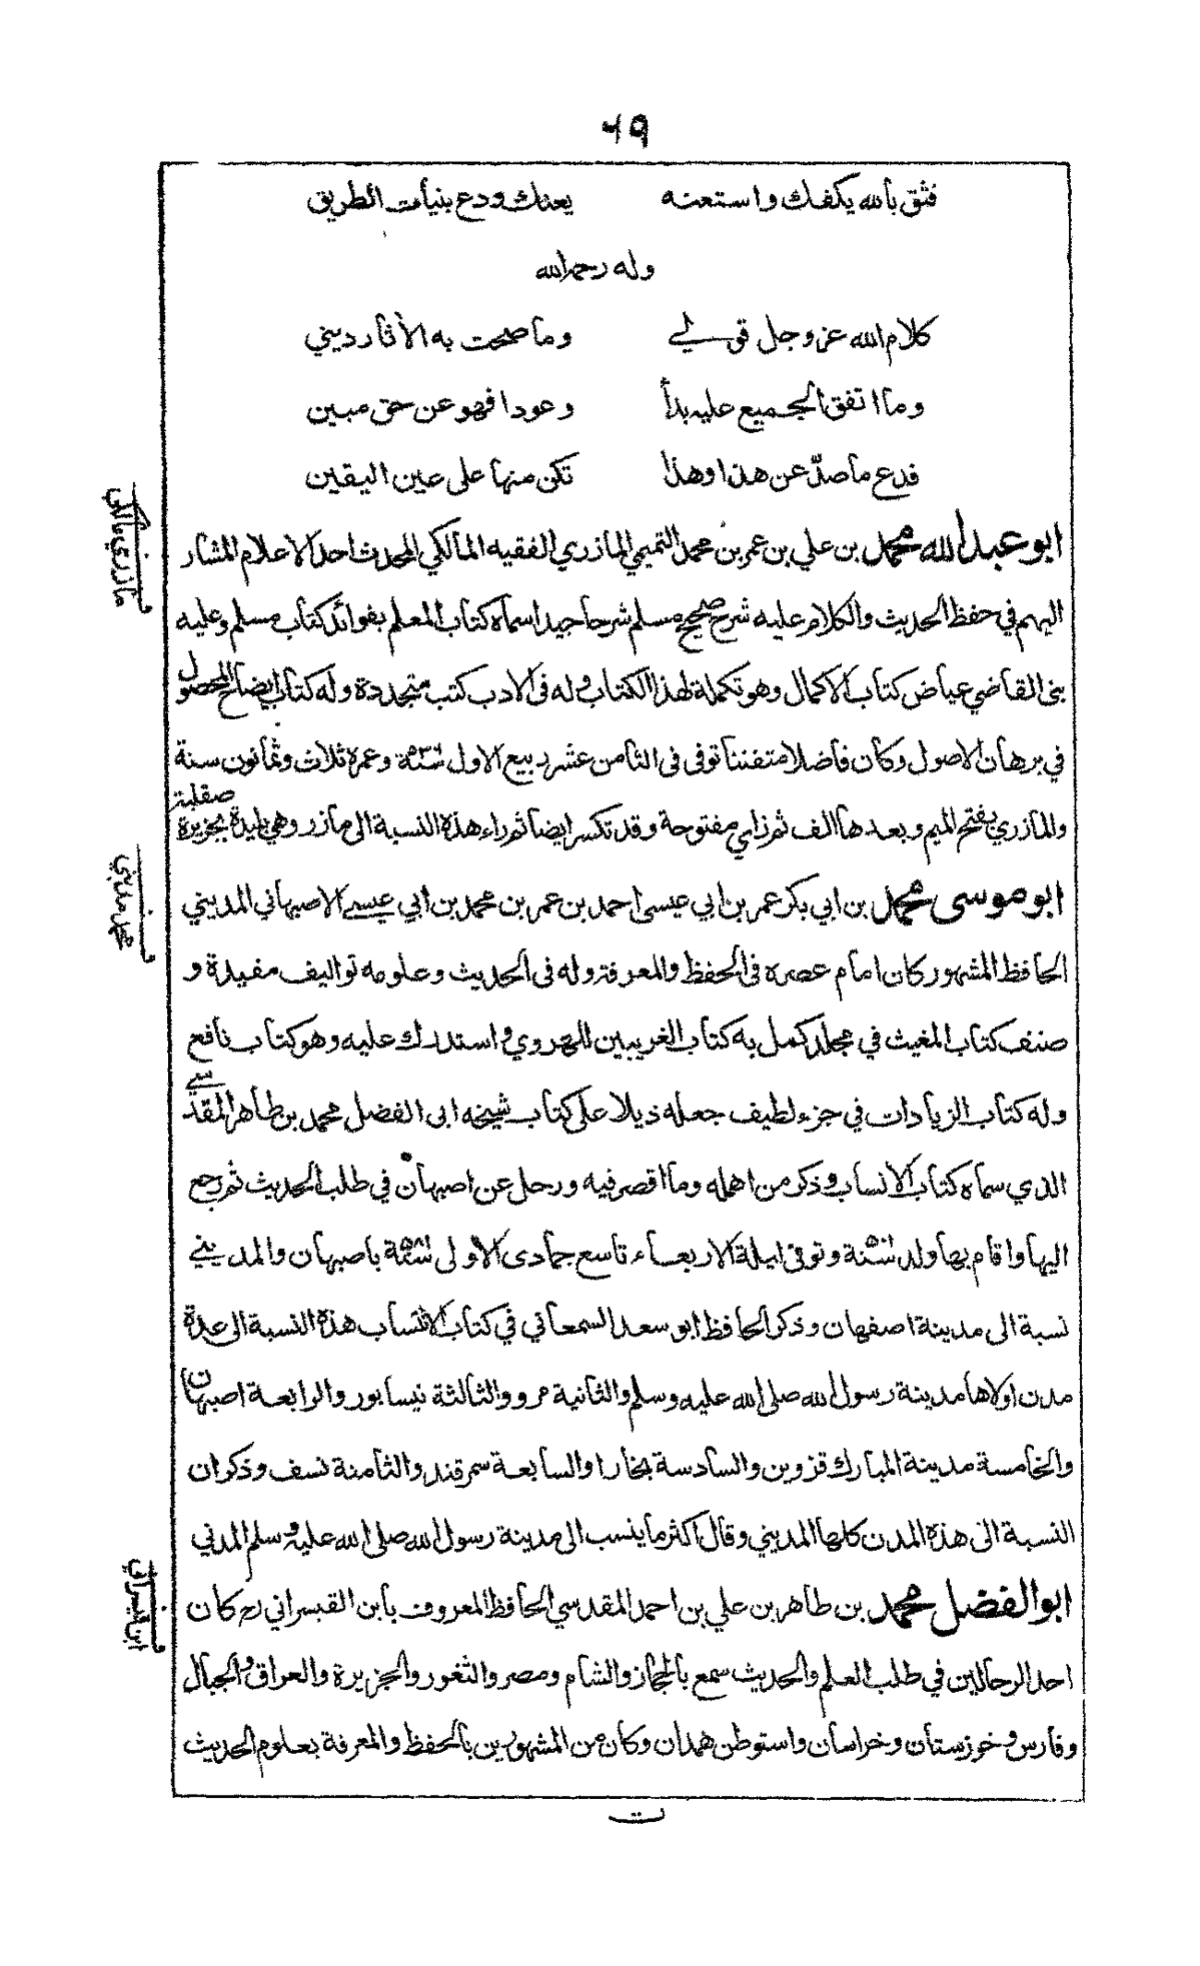 ٦٩
فثق بالله يكفك واستعنه يعنك ودع بنيات الطريق
وله رحمه الله
كلام الله عز وجل قولي وما صححت به الآثار ديني
وما اتفق الجميع عليه بدأ وعودا فهو عن حق مبين
فدع ما صدّ عن هذا وهذا تكن منها على عين اليقين
ابو عبد الله محمد بن علي بن عمر بن محمد التميمي المازري الفقيه المالكي المحدث احد الاعلام المشار
اليهم في حفظ الحديث والكلام عليه شرح صحيح مسلم شرحا جيدا سماه كتاب المعلم بفوائد كتاب مسلم وعليه
بنى القاضي عياض كتاب الاكمال وهو تكملة لهذا الكتاب وله في الادب كتب متجددة وله كتاب ايضاح المحصول
في برهان الاصول وكان فاضلا متفننا توفى فى الثامن عشر ربيع الاول سنة ٥٣٦ وعمره ثلاث وثمانون سنة
والمازري بفتح الميم وبعدها الف ثم زاي مفتوحة وقد تكسر ايضا ثم راء هذه النسبة الى مازر وهي بليدة بجزيرة صقلية
ابو موسى محمد بن ابي بكر عمر بن ابي عيسى احمد بن عمر بن محمد بن ابي عيسى الاصبهاني المديني
الحافظ المشهور كان امام عصره في الحفظ والمعرفة وله في الحديث وعلومه تواليف مفيدة و
صنف كتاب المغيث في مجلد كمل به كتاب الغريبين للهروي واستدرك عليه وهو كتاب نافع
وله كتاب الزيادات في جزء لطيف جعله ذيلا على كتاب شيخه ابى الفضل محمد بن طاهر المقدسي
الذي سماه كتاب الانساب وذكر من اهمله وما اقصر فيه ورحل عن اصبهان في طلب الحديث ثم رجع
اليها واقام بها ولد سنة ٥٠١ وتوفى ليلة الاربعاء تاسع جمادى الاولى سنة ٥٨١ باصبهان والمديني
نسبة الى مدينة اصفهان وذكر الحافظ ابو سعد السمعاني في كتاب الانساب هذه النسبة الى عدة
مدن اولاها مدينة رسول الله صلى الله عليه وسلم والثانية مرو والثالثة نيسابور والرابعة اصبهان
والخامسة مدينة المبارك قزوين والسادسة بخارا والسابعة سمرقند والثامنة نسف وذكر ان
النسبة الى هذه المدن كلها المديني وقال اكثر ما ينسب الى مدينة رسول الله صلى الله عليه وسلم المدني
ابو الفضل محمد بن طاهر بن علي بن احمد المقدسي الحافظ المعروف بابن القيسراني رح كان
احد الرحالين في طلب العلم والحديث سمع بالحجاز والشام ومصر والثغور والجزيرة والعراق والجبال
وفارس وخوزستان وخراسان واستوطن همدان وكان من المشهورين بالحفظ والمعرفة بعلوم الحديث
مازري مالكي
محمد مديني
ابن قيسراني